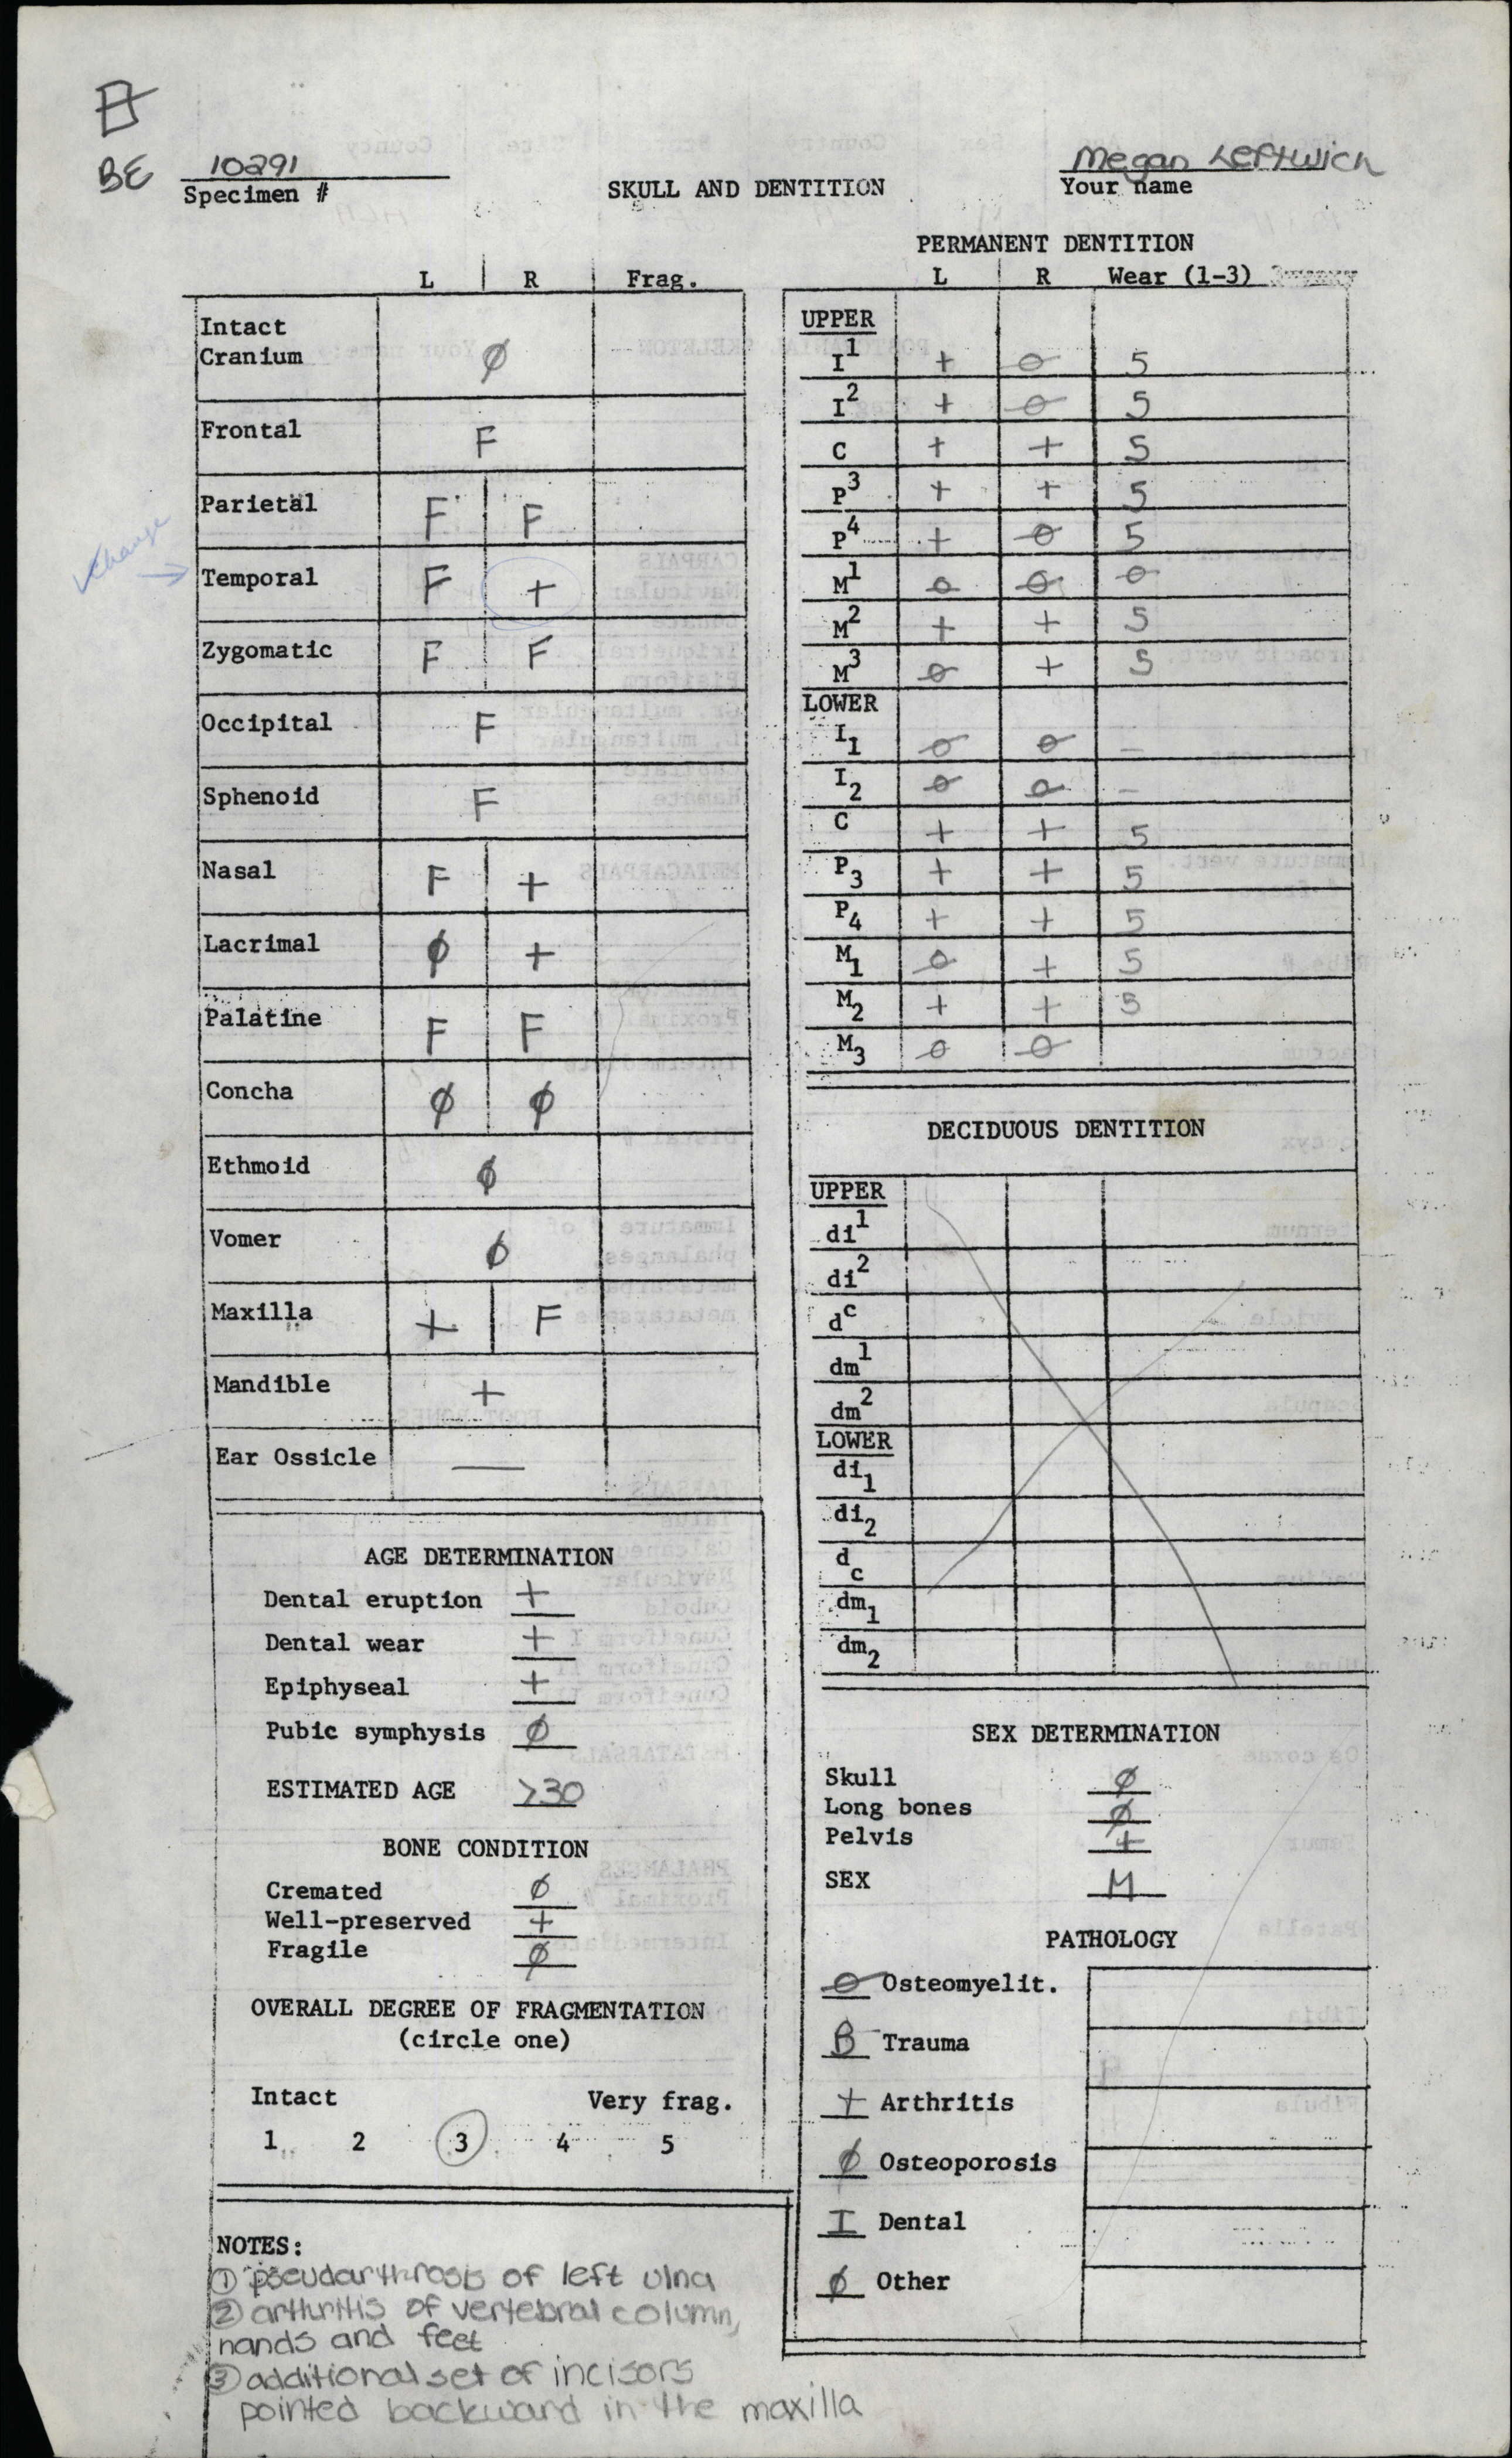 BE 10291
Specimen #
SKULL AND DENTITION
Megan Leftwich
Your name
L R Frag.
Intact
Cranium ∅
Frontal F
Parietal F F
change →
Temporal F +
Zygomatic F F
Occipital F
Sphenoid F
Nasal F +
Lacrimal ∅ +
Palatine F F
Concha ∅ ∅
Ethmoid ∅
Vomer ∅
Maxilla + F
Mandible +
Ear Ossicle —
AGE DETERMINATION
Dental eruption +
Dental wear +
Epiphyseal +
Pubic symphysis ∅
ESTIMATED AGE >30
BONE CONDITION
Cremated ∅
Well-preserved +
Fragile ∅
OVERALL DEGREE OF FRAGMENTATION
(circle one)
Intact Very frag.
1 2 3 4 5
NOTES:
① pseudarthrosis of left ulna
② arthritis of vertebral column,
hands and feet
③ additional set of incisors
pointed backward in the maxilla
PERMANENT DENTITION
L R Wear (1-3)
UPPER
I¹ + ∅ 5
I² + ∅ 5
C + + 5
P³ + + 5
P⁴ + ∅ 5
M¹ ∅ ∅ ∅
M² + + 5
M³ ∅ + 5
LOWER
I₁ ∅ ∅ —
I₂ ∅ ∅ —
C + + 5
P₃ + + 5
P₄ + + 5
M₁ ∅ + 5
M₂ + + 5
M₃ ∅ ∅
DECIDUOUS DENTITION
UPPER
di¹
di²
dᶜ
dm¹
dm²
LOWER
di₁
di₂
d_c
dm₁
dm₂
SEX DETERMINATION
Skull ∅
Long bones ∅
Pelvis +
SEX M
PATHOLOGY
∅ Osteomyelit.
B Trauma
+ Arthritis
∅ Osteoporosis
I Dental
∅ Other